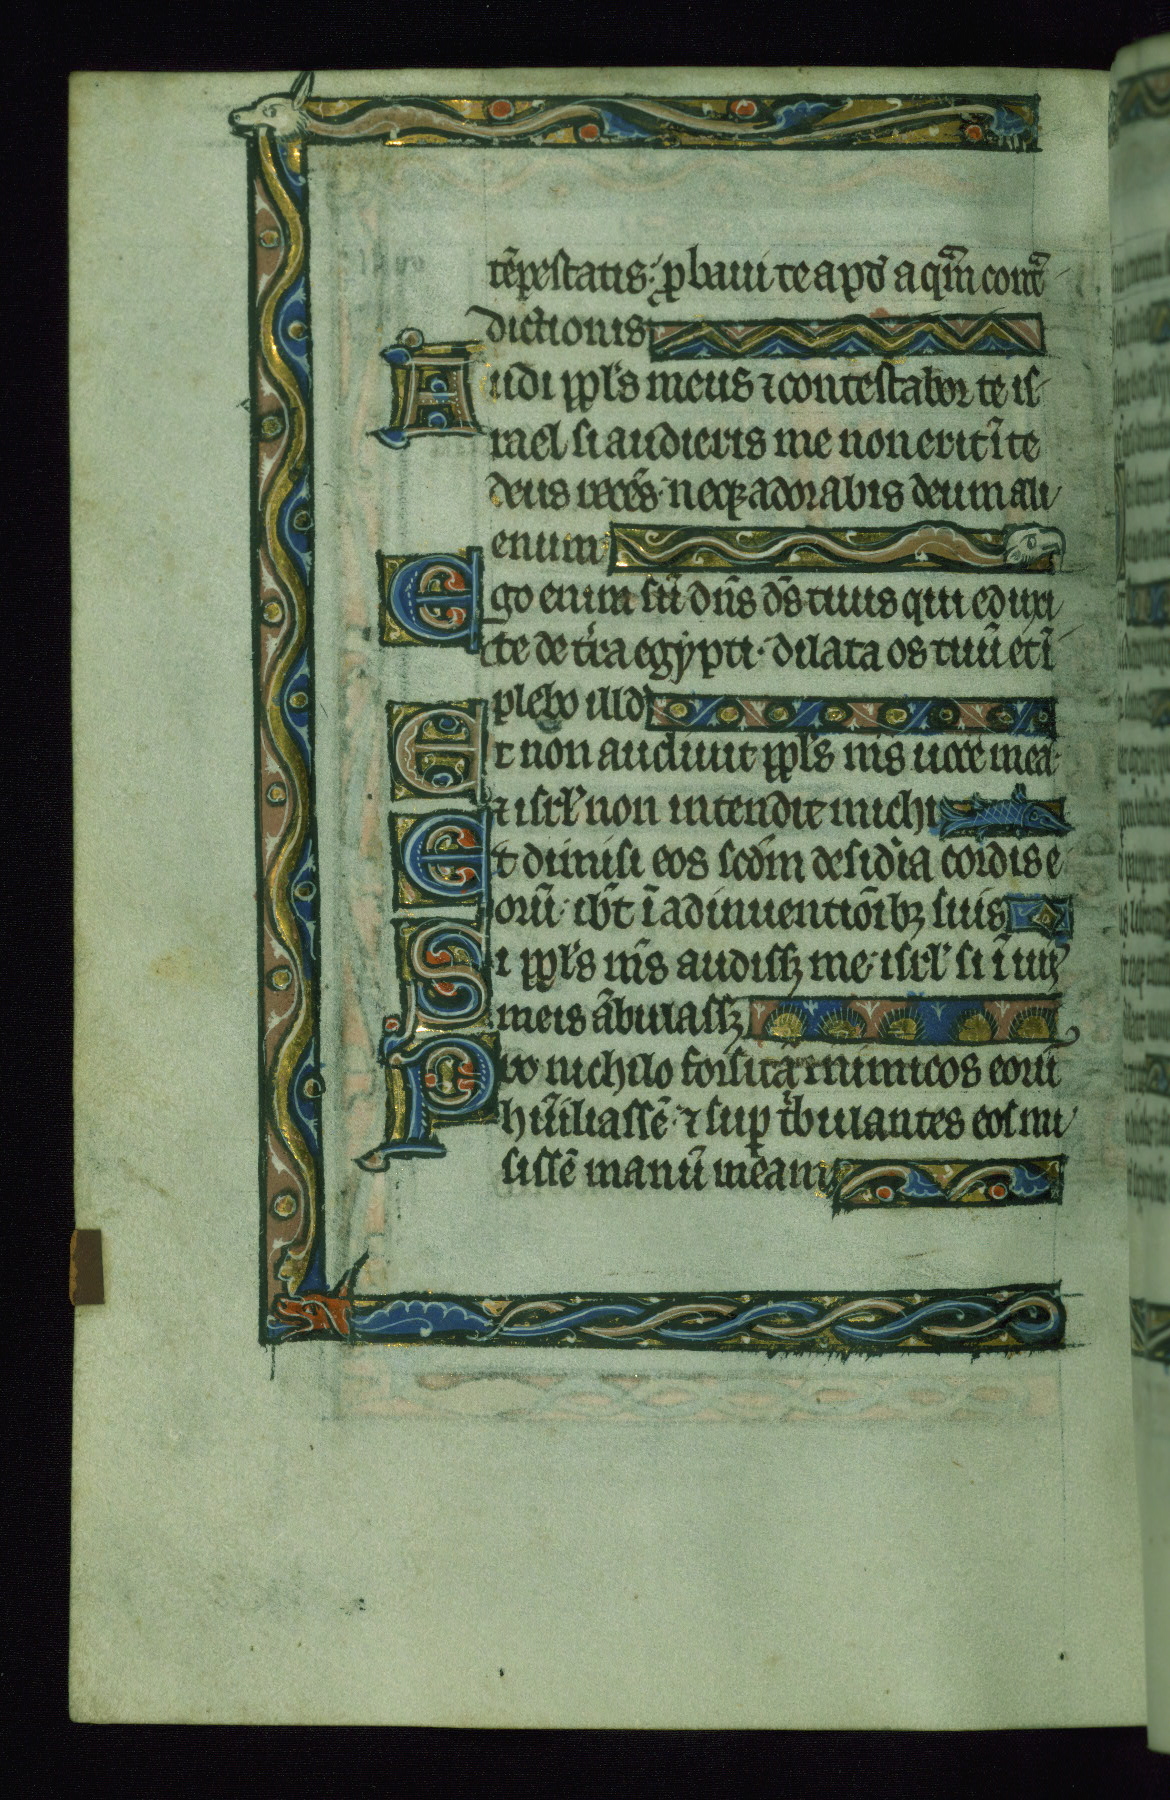 tēpestatis: ꝓbaui te apď aq̄m cont̄
dictionis
Audi ppl's meus ⁊ contestabor te is
rael si audieris me non erit ī te
deus recēs· neqꝫ adorabis deum ali
enum
Ego enim sū dn̄s ds̄ tuus qui eduxi
te de t̄ra egypti· dilata os tuū et ī
plebo illď
Et non audiuit ppl's ms̄ uocē meā
⁊ isrl' non intendit michi
Et dimisi eos scd̄m desid̄ia cordis e
orū· ibt̄ ī adinuentiōibꝫ suis
Si ppl's ms̄ audissꝫ me· isrl' si ī uiis
meis ābulassꝫ
Pro nichilo forsitā inimicos eorū
hūiliassē· ⁊ suꝑ t'bulantes eos mi
sissē manū meam